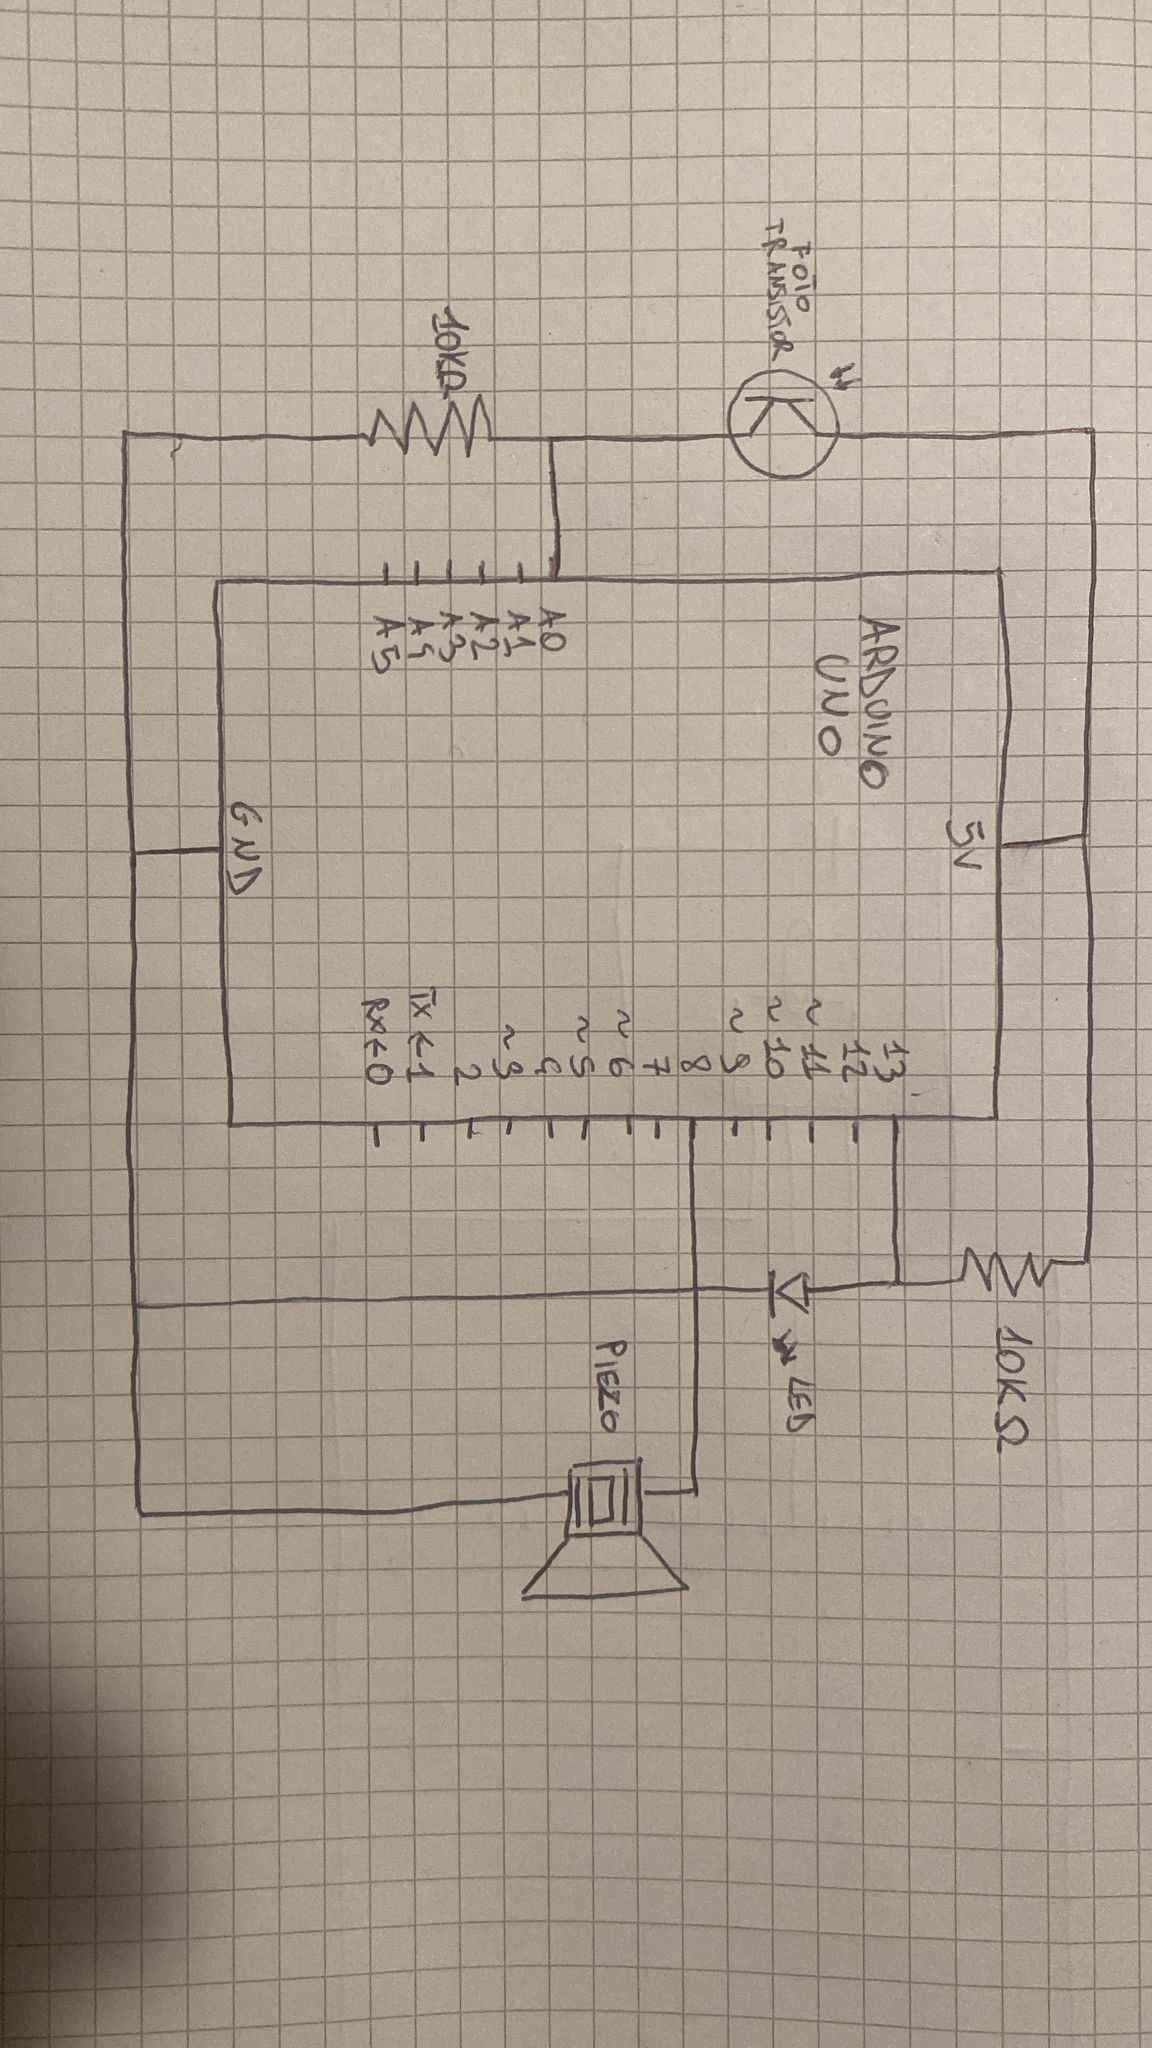 FOTO
TRANSISTOR
10KΩ
ARDUINO
UNO
5V
GND
A0
A1
A2
A3
A4
A5
13
12
~11
~10
~9
8
7
~6
~5
4
~3
2
TX←1
RX←0
10KΩ
LED
PIEZO